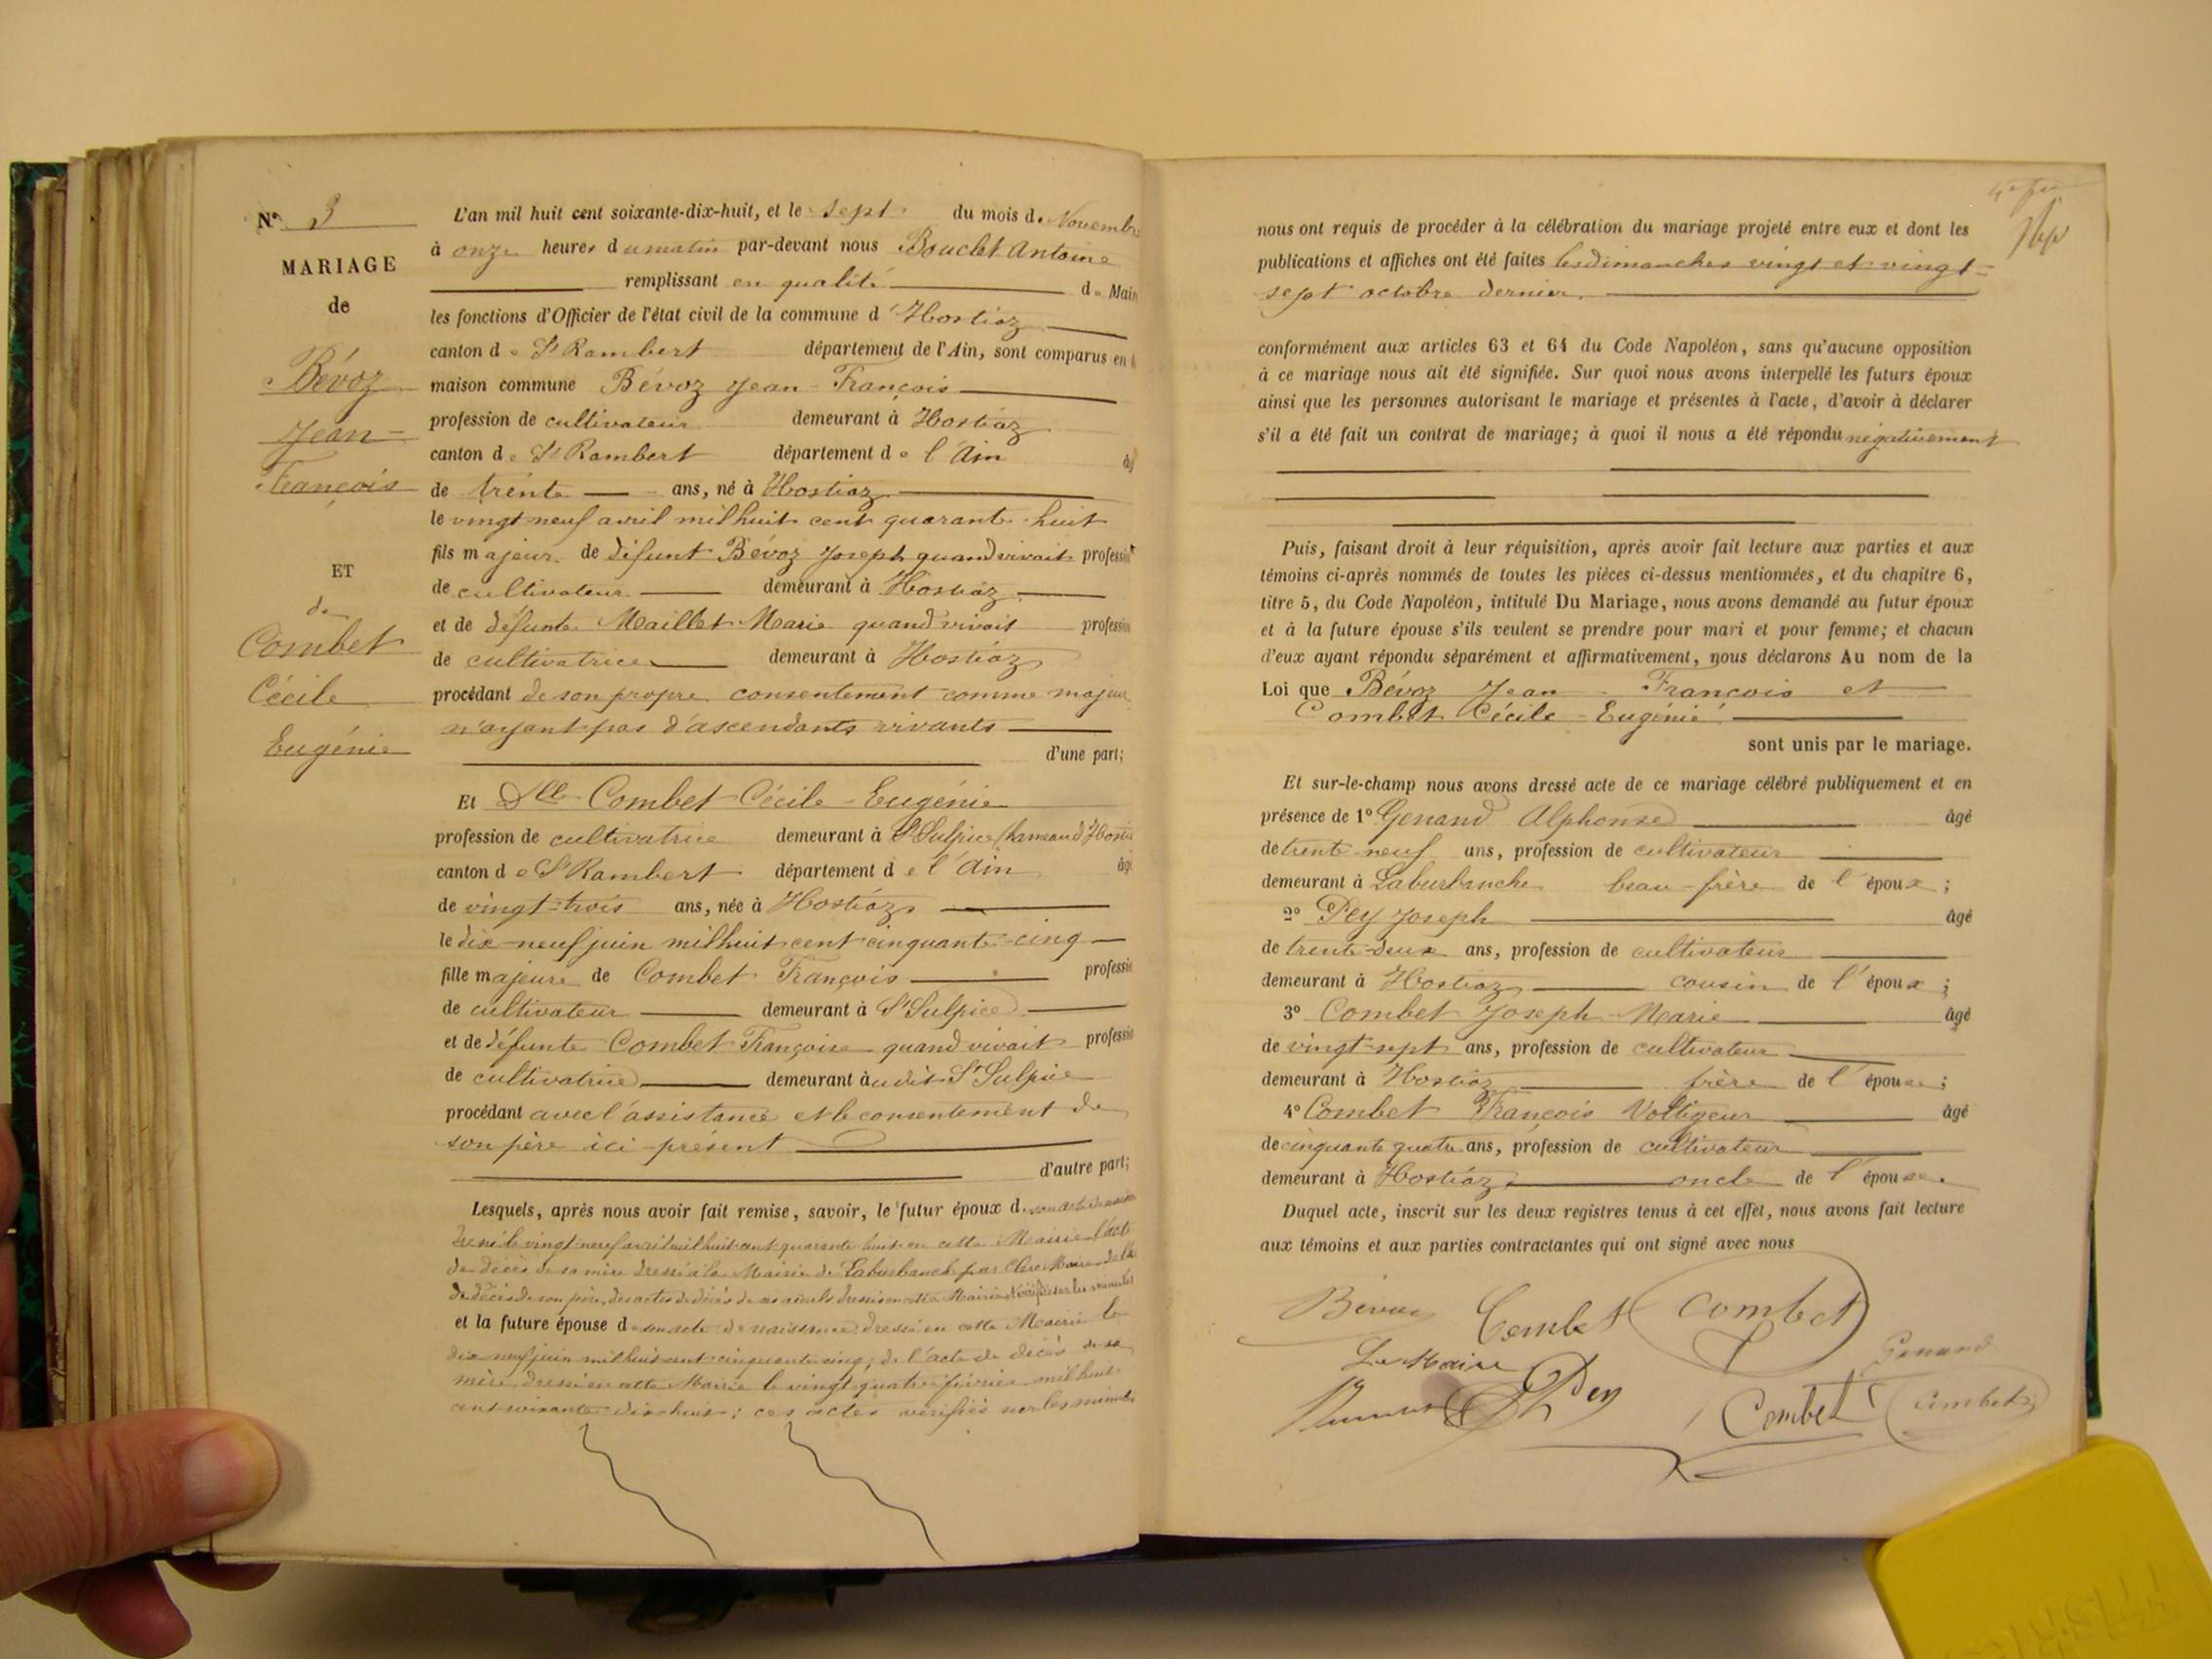 N° 3
MARIAGE
de
Bévoz
Jean-
François
ET
de
Combet
Cécile
Eugénie
L'an mil huit cent soixante-dix-huit, et le sept du mois de Novembre
à onze heures du matin par-devant nous Bouclet Antoine
remplissant en qualité de Mair
les fonctions d'Officier de l'état civil de la commune d'Hostiaz
canton de St Rambert département de l'Ain, sont comparus en l
maison commune Bévoz Jean-François
profession de cultivateur demeurant à Hostiaz
canton de St Rambert département de l'Ain âg
de trente ans, né à Hostiaz
le vingt neuf avril mil huit cent quarante-huit
fils majeur de défunt Bévoz Joseph quand vivait profession
de cultivateur demeurant à Hostiaz
et de défunte Maillet Marie quand vivait profession
de cultivatrice demeurant à Hostiaz
procédant de son propre consentement comme majeur
n'ayant pas d'ascendants vivants
d'une part;
Et Dlle Combet Cécile-Eugénie
profession de cultivatrice demeurant à St Sulpice (hameau d'Hostia
canton de St Rambert département de l'Ain âgé
de vingt-trois ans, née à Hostiaz
le dix-neuf juin mil huit cent cinquante-cinq
fille majeure de Combet François professio
de cultivateur demeurant à St Sulpice
et de défunte Combet Françoise quand vivait professio
de cultivatrice demeurant audit St Sulpice
procédant avec l'assistance et le consentement de
son père ici-présent
d'autre part;
Lesquels, après nous avoir fait remise, savoir, le futur époux de son acte de naiss
dressé le vingt-neuf avril mil huit cent quarante huit en cette Mairie l'acte
de décès de sa mère dressé à la Mairie de Laburbanche par
de décès de son père, des actes de décès de ses aïeuls dressés en cette Mairie vérifiés sur les minutes
et la future épouse de son acte de naissance dressé en cette Mairie le
dix-neuf juin mil huit cent cinquante cinq; de l'acte de décès de sa
mère dressé en cette Mairie le vingt quatre février mil huit
cent soixante-dix-huit; ces actes vérifiés sur les minutes
nous ont requis de procéder à la célébration du mariage projeté entre eux et dont les
publications et affiches ont été faites les dimanches vingt et vingt-
sept octobre dernier.
conformément aux articles 63 et 64 du Code Napoléon, sans qu'aucune opposition
à ce mariage nous ait été signifiée. Sur quoi nous avons interpellé les futurs époux
ainsi que les personnes autorisant le mariage et présentes à l'acte, d'avoir à déclarer
s'il a été fait un contrat de mariage; à quoi il nous a été répondu négativement
Puis, faisant droit à leur réquisition, après avoir fait lecture aux parties et aux
témoins ci-après nommés de toutes les pièces ci-dessus mentionnées, et du chapitre 6,
titre 5, du Code Napoléon, intitulé Du Mariage, nous avons demandé au futur époux
et à la future épouse s'ils veulent se prendre pour mari et pour femme; et chacun
d'eux ayant répondu séparément et affirmativement, nous déclarons Au nom de la
Loi que Bévoz Jean-François et
Combet Cécile-Eugénie
sont unis par le mariage.
Et sur-le-champ nous avons dressé acte de ce mariage célébré publiquement et en
présence de 1° Genand Alphonse âgé
de trente-neuf ans, profession de cultivateur
demeurant à Laburbanche beau-frère de l'époux;
2° Pey Joseph âgé
de trente-deux ans, profession de cultivateur
demeurant à Hostiaz cousin de l'époux;
3° Combet Joseph-Marie âgé
de vingt-sept ans, profession de cultivateur
demeurant à Hostiaz frère de l'épouse;
4° Combet François Voltigeur âgé
de cinquante quatre ans, profession de cultivateur
demeurant à Hostiaz oncle de l'épouse.
Duquel acte, inscrit sur les deux registres tenus à cet effet, nous avons fait lecture
aux témoins et aux parties contractantes qui ont signé avec nous
Bévoz Combet Combet
Le Maire Genand
Pey Combet Combet